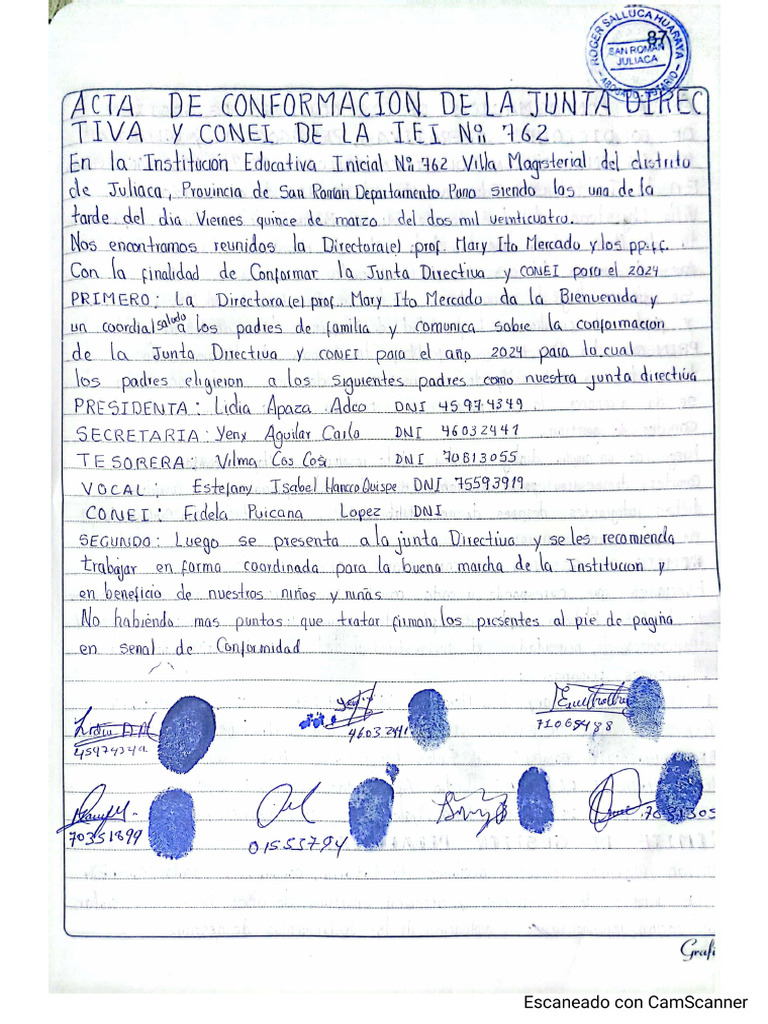 ROGER SALLUCA HUARAYA
87
SAN ROMAN
JULIACA
ABOGADO - NOTARIO
ACTA DE CONFORMACION DE LA JUNTA DIREC
TIVA Y CONEI DE LA I.E.I Nº 762
En la Institución Educativa Inicial Nº 762 Villa Magisterial del distrito
de Juliaca, Provincia de San Román Departamento Puno siendo las una de la
tarde del dia Viernes quince de marzo del dos mil veinticuatro.
Nos encontramos reunidos la Directora(e) prof. Mary Ito Mercado y los pp.ff.
Con la finalidad de Conformar la Junta Directiva y CONEI para el 2024
PRIMERO: La Directora(e) prof. Mary Ito Mercado da la Bienvenida y
un coordial saludo a los padres de familia y comunica sobre la conformación
de la Junta Directiva y CONEI para el año 2024 para lo cual
los padres eligieron a los siguientes padres como nuestra junta directiva
PRESIDENTA: Lidia Apaza Adco DNI 45974349
SECRETARIA: Yeny Aguilar Carlo DNI 46032441
TESORERA: Vilma Cos Cosi DNI 70813055
VOCAL: Estefany Isabel Hancco Quispe DNI 75593919
CONEI: Fidela Puicana Lopez DNI
SEGUNDO: Luego se presenta a la junta Directiva y se les recomienda
trabajar en forma coordinada para la buena marcha de la Institucion y
en beneficio de nuestros niños y niñas
No habiendo mas puntos que tratar firman los presentes al pie de pagina
en senal de Conformidad
46032441
71065488
70351899
01553794
Grafi
Escaneado con CamScanner